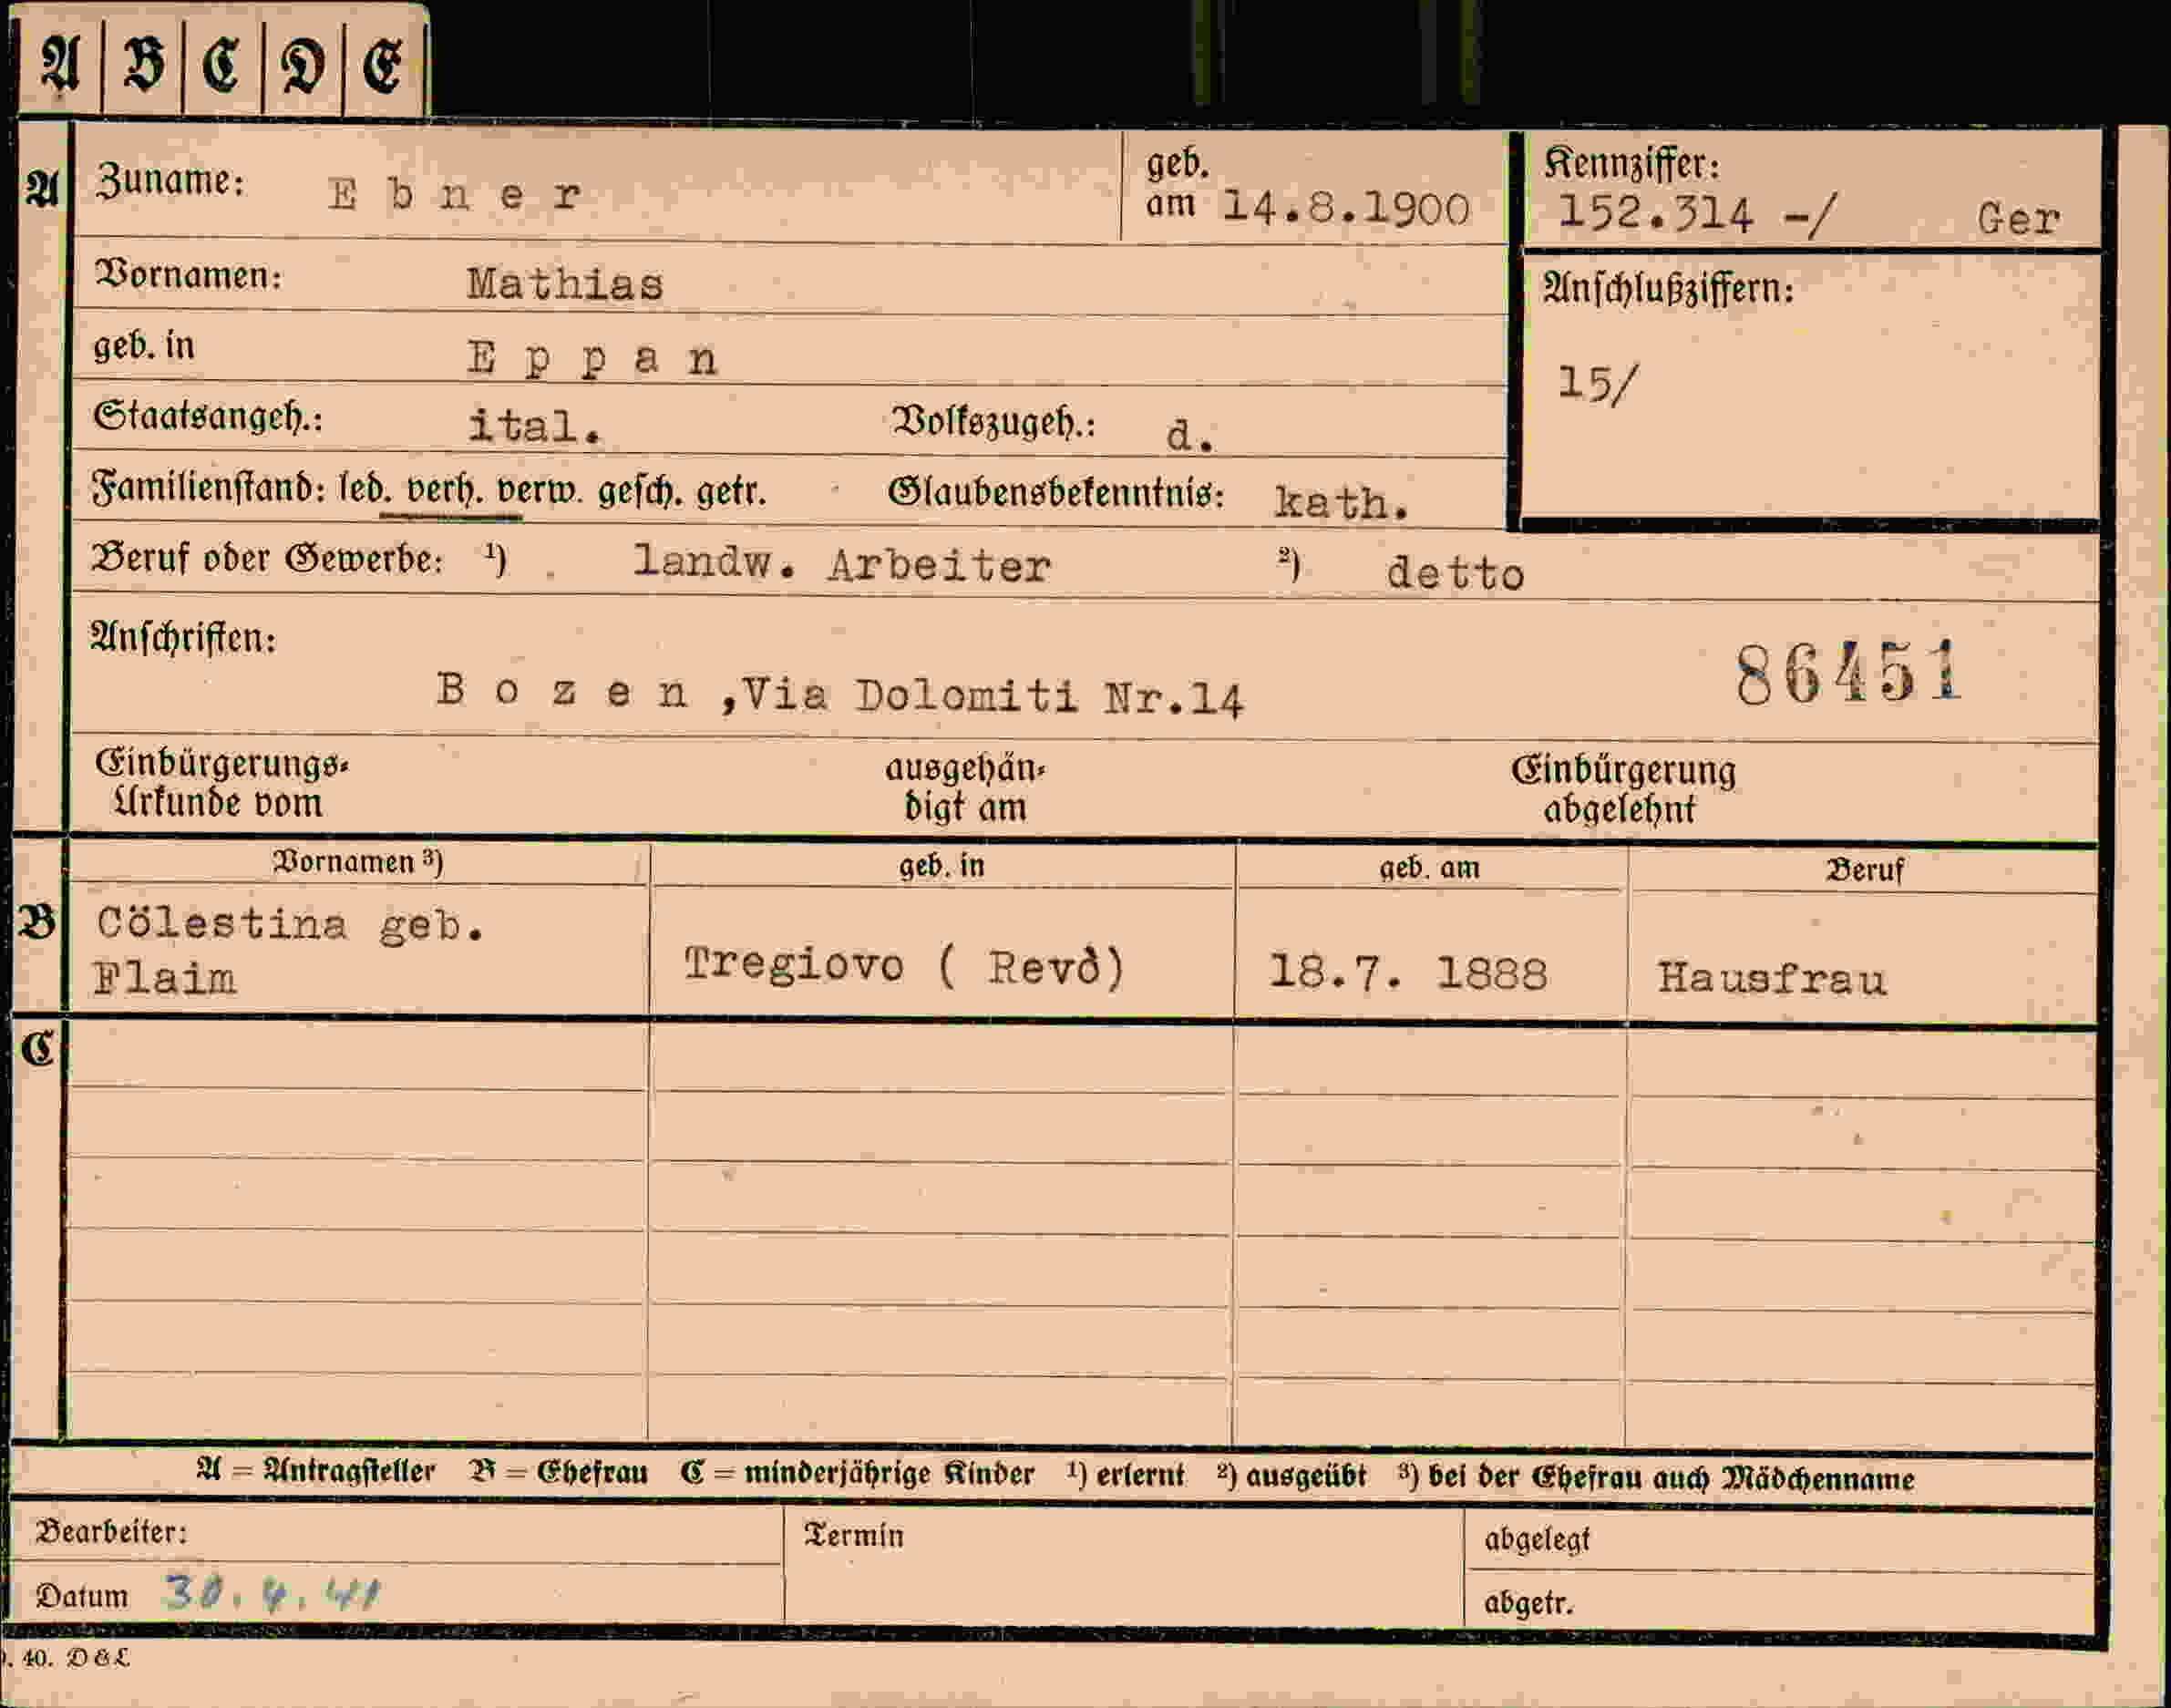 A B C D E
A Zuname: Ebner geb. am 14.8.1900 Kennziffer: 152.314 -/ Ger
Vornamen: Mathias Anschlußziffern:
geb. in Eppan 15/
Staatsangeh.: ital. Volkszugeh.: d.
Familienstand: led. verh. verw. gesch. getr. Glaubensbekenntnis: kath.
Beruf oder Gewerbe: ¹) landw. Arbeiter ²) detto
Anschriften: 86451
Bozen ,Via Dolomiti Nr.14
Einbürgerungs- ausgehän- Einbürgerung
Urkunde vom digt am abgelehnt
Vornamen ³) geb. in geb. am Beruf
B Cölestina geb.
Flaim Tregiovo ( Revò) 18.7. 1888 Hausfrau
C
A = Antragsteller B = Ehefrau C = minderjährige Kinder ¹) erlernt ²) ausgeübt ³) bei der Ehefrau auch Mädchenname
Bearbeiter: Termin abgelegt
Datum 30.4.41 abgetr.
. 40. D & L